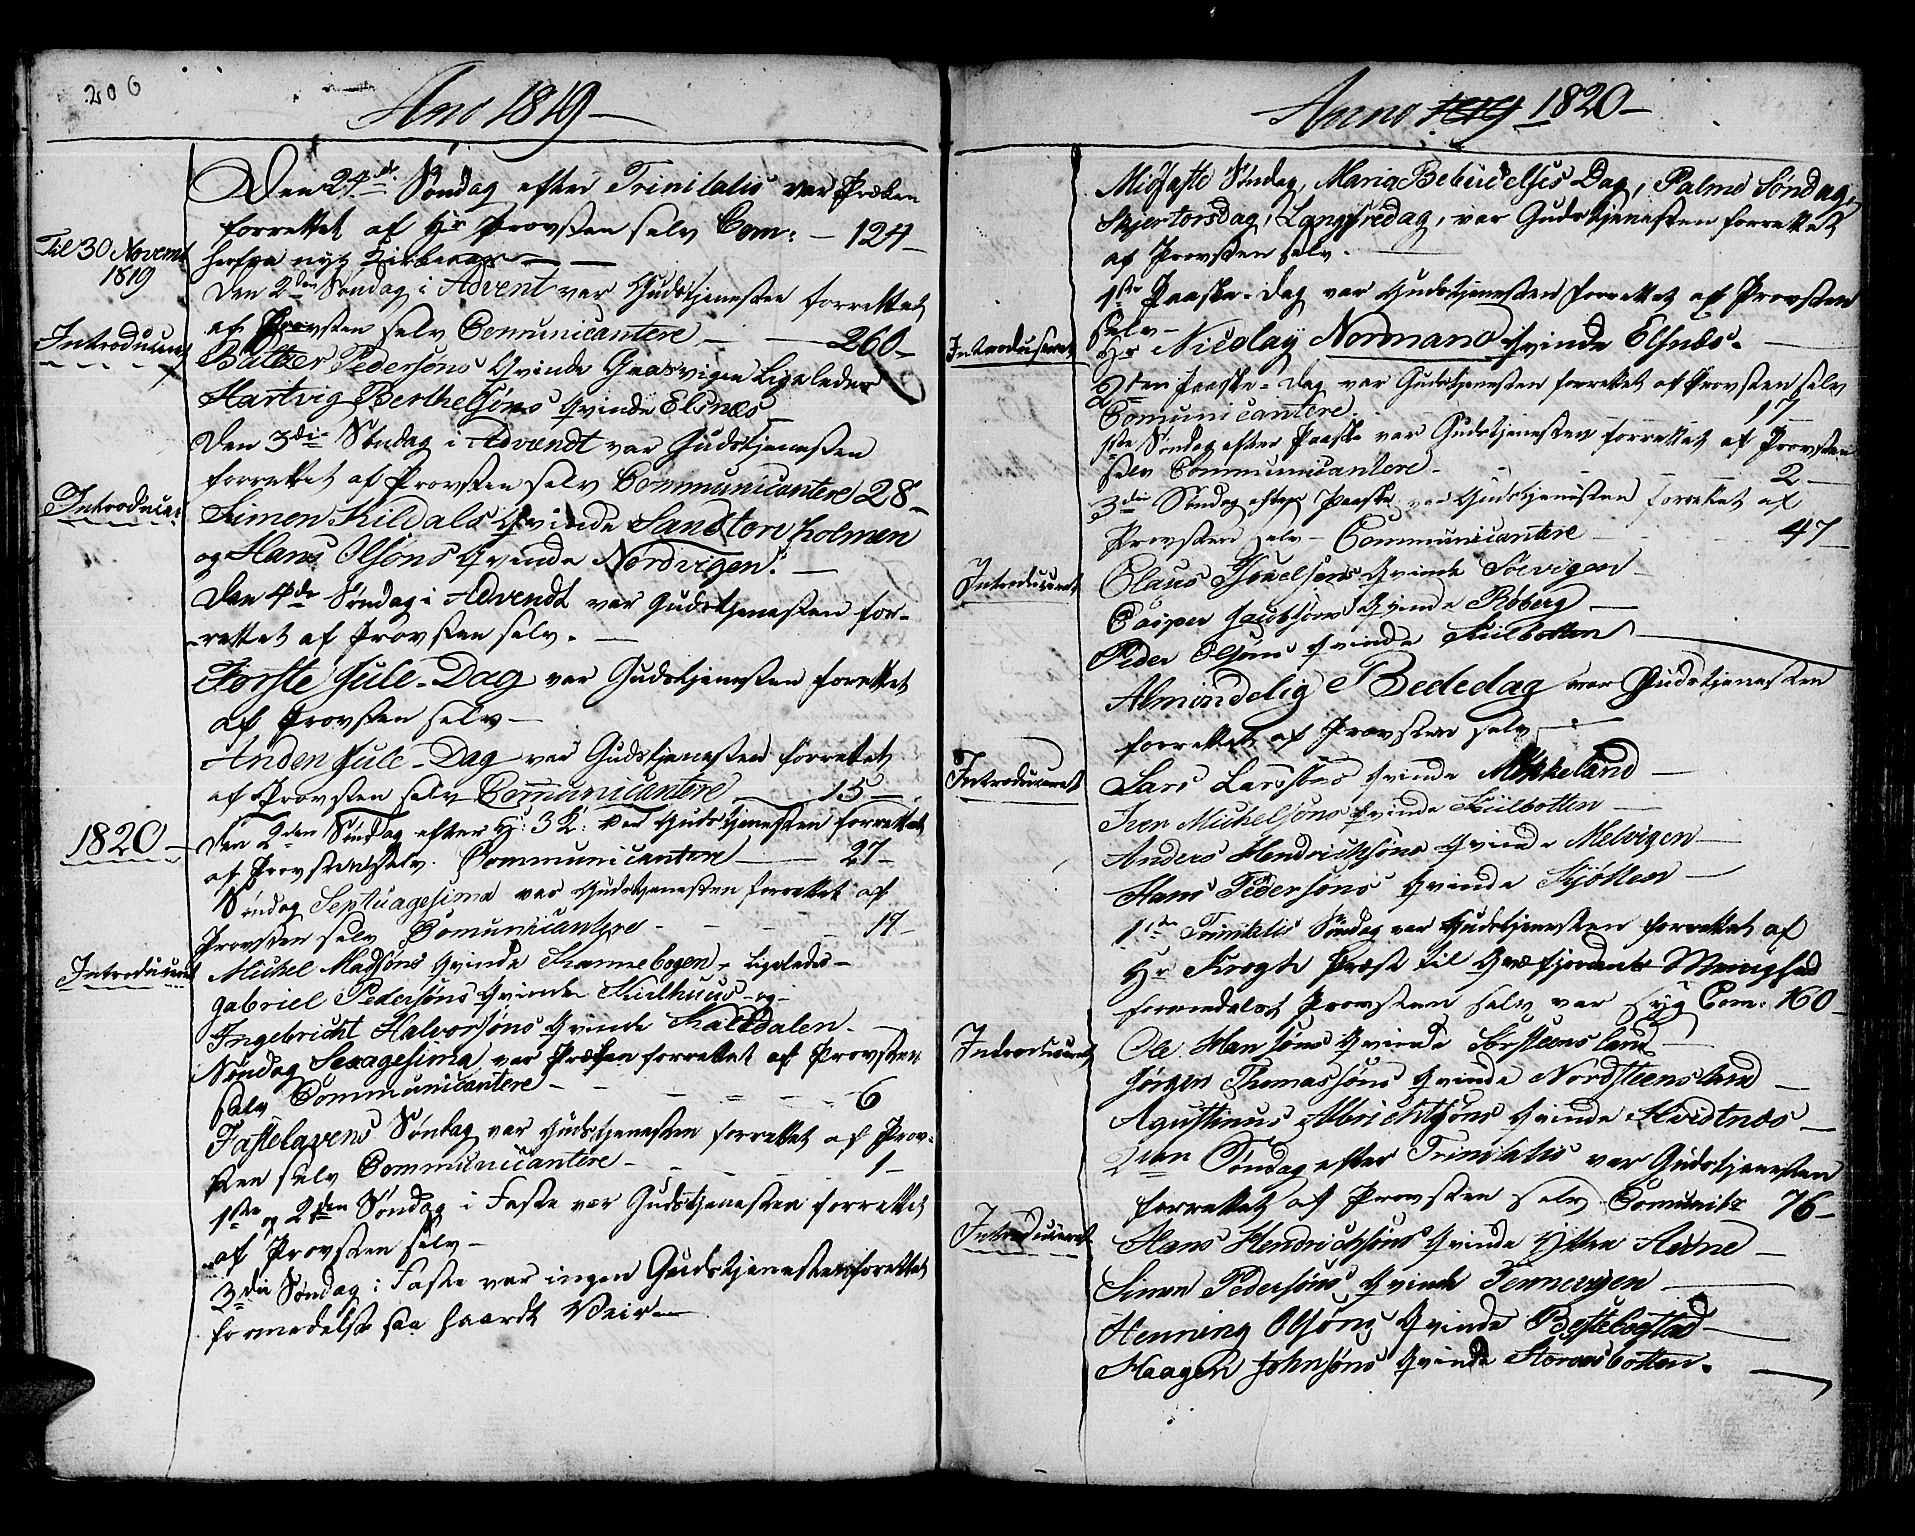 206
Ano 1819
Den 24de Søndag efter Trinitatis var Præken
forrettet af Hr Provsten selv Com: – 124 –
Til 30 Novemb
1819
herfra nyt
Den 2den Søndag i Advent var Gudstjenesten forrettet
af Provsten selv Comunicantere – 260 –
Introduceret
Baltzer Pedersøns Qvinde Grasvigen Ligeledes
Hartvig Berthelsøns Qvinde Elsnæs –
Den 3die Søndag i Advendt var Gudstjenesten
forrettet af Provsten selv Communicantere 28 –
Introducer:
Simon Kildals Qvinde Sandtorvholmen
og Hans Olsøns Qvinde Nordvigen. –
Den 4de Søndag i Advendt var Gudstjenesten for-
rettet af Provsten selv. –
Første Jule-Dag var Gudstjenesten forrettet
af Provsten selv –
Anden Jule-Dag var Gudstjenesten forrettet
af Provsten selv Comunicantere – 15 –
1820 –
Den 2den Søndag efter H: 3 K: var Gudstjenesten forrettet
af Provsten selv. Communicantere – 27 –
Søndag Septuagesima var Gudstjenesten forrettet af
Provsten selv Comunicantere – 17 –
Introduceret
Michel Madsøns Qvinde Kannebogen, Ligeledes –
Gabriel Pedersøns Qvinde – og –
Ingebricht Halvorsøns Qvinde Kalddalen –
Søndag Sexagesima var Præken forrettet af Provsten
selv Communicantere – 6
Fastelavens Søndag var Gudstjenesten forrettet af Prov-
sten selv Communicantere – 1 –
1ste og 2den Søndag i Faste var Gudstjenesten forrettet
af Provsten selv –
3die Søndag i Faste var ingen Gudstjenesten forrettet
formedelst saa haardt Veir –
Anno 1819 1820 –
Midfaste Søndag, Maria Bebudelses Dag, Palme Søndag,
Skjertorsdag, Langfredag, var Gudstjenesten forrettet
af Provsten selv.
1ste Paaske-Dag var Gudstjenesten forrettet af Provsten
selv –
Introduseret
Hr Nicolay Normans Qvinde Elsnæs. –
2den Paaske-Dag var Gudstjenesten forrettet af Provsten selv
Comunicantere. 17 –
1ste Søndag efter Paaske var Gudstjenesten forrettet af Provsten
selv Communicantere – 2 –
3die Søndag efter Paaske var Gudstjenesten forrettet af
Provsten selv – Communicantere – 47 –
Introduceret
Claus Qvinde Søevigen –
Casper Jacobsøns Qvinde Røberg –
Peder Olsøns Qvinde Kiilbotten –
Almindelig Bededag var Gudstjenesten
forrettet af Provsten selv –
Introduceret
Lars Larssøns Qvinde Mækkeland –
Iver Michelsøns Qvinde Kiilbotten –
Anders Hendrichsøns Qvinde Melvigen –
Hans Pedersøns Qvinde Kjøtten –
1ste Trinitatis Søndag var Gudstjenesten forrettet af
Hr Krogh Præst til Qvæfjordens Menighed
formedelst Provsten selv var syg Com. 160 –
Introduceret
Ole Hansøns Qvinde Sørsteensland –
Jørgen Thomassøns Qvinde Nordsteensland –
Agustinus Albrichtsøns Qvinde Hvidtnæs –
2den Søndag efter Trinitatis var Gudstjenesten
forrettet af Provsten selv Comunikr 76 –
Introduceret
Hans Hendrichsøns Qvinde Ytter
Simon Pedersøns Qvinde Tennevigen –
Henning Olsøns Qvinde Bestebostad –
Haagen Johnsøns Qvinde Storvasbotten. –